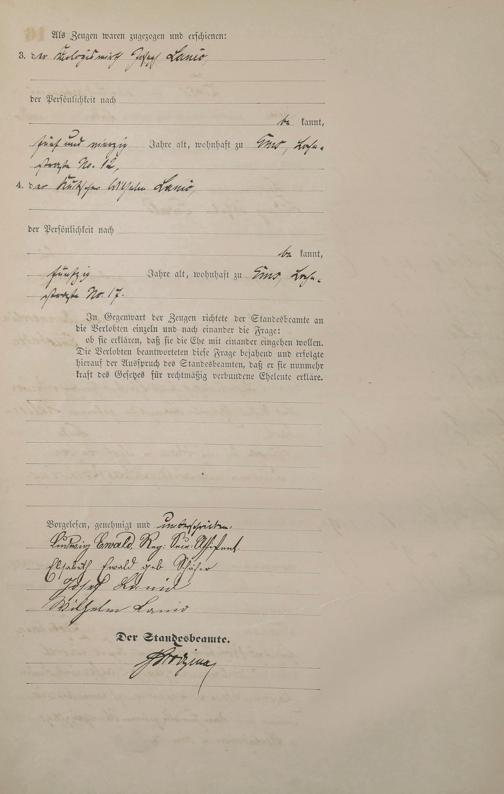 Als Zeugen waren zugezogen und erschienen:
3. der Joseph Lanio
der Persönlichkeit nach
be kannt,
fünf und vierzig Jahre alt, wohnhaft zu Ems, Lahn-
straße No. 12,
4. der Kutscher Wilhelm Lanio,
der Persönlichkeit nach
be kannt,
fünfzig Jahre alt, wohnhaft zu Ems, Lahn-
straße No. 17.
In Gegenwart der Zeugen richtete der Standesbeamte an
die Verlobten einzeln und nach einander die Frage:
ob sie erklären, daß sie die Ehe mit einander eingehen wollen.
Die Verlobten beantworteten diese Frage bejahend und erfolgte
hierauf der Ausspruch des Standesbeamten, daß er sie nunmehr
kraft des Gesetzes für rechtmäßig verbundene Eheleute erkläre.
Vorgelesen, genehmigt und unterschrieben.
Ludwig Ewald, Reg:
Elisabeth Ewald geb Schäfer
Josef Lanio
Wilhelm Lanio
Der Standesbeamte.